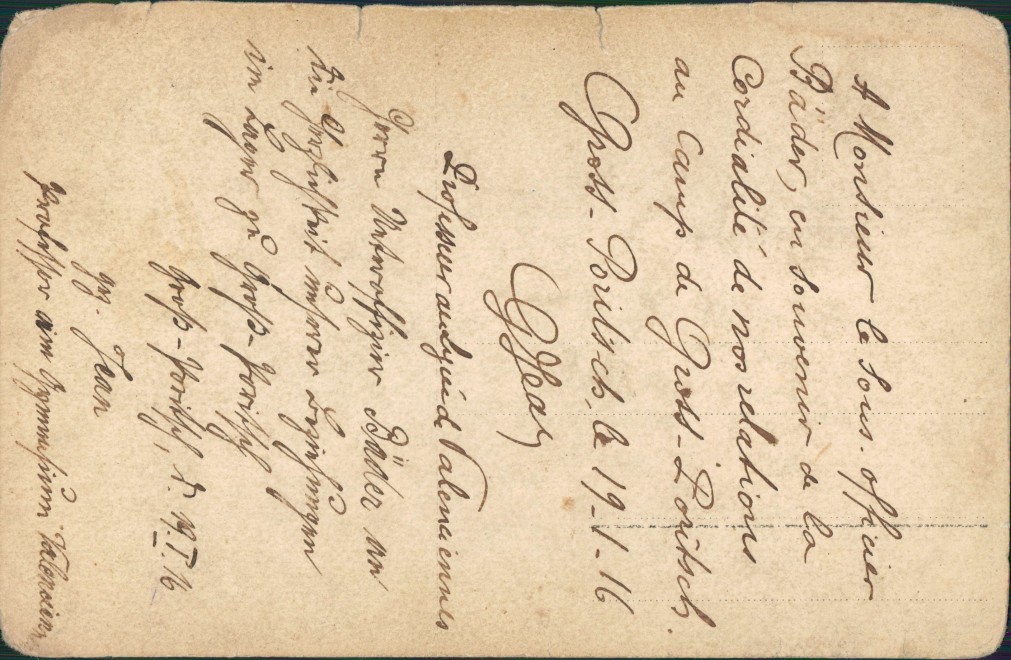 A Monsieur le Sous-officier
Bäder, en souvenir de la
Cordialité de nos relations
au Camp de Gross-Poritsch.
Gross-Poritsch, le 19-1-16
GJean
Professeur au lycée de Valenciennes
Herrn Unteroffizier Bäder an
die Herzlichkeit unserer Beziehungen
im Lager zu Groß-Poritsch
Groß-Poritsch, d. 19.I.16
gez. Jean
Professor am Gymnasium